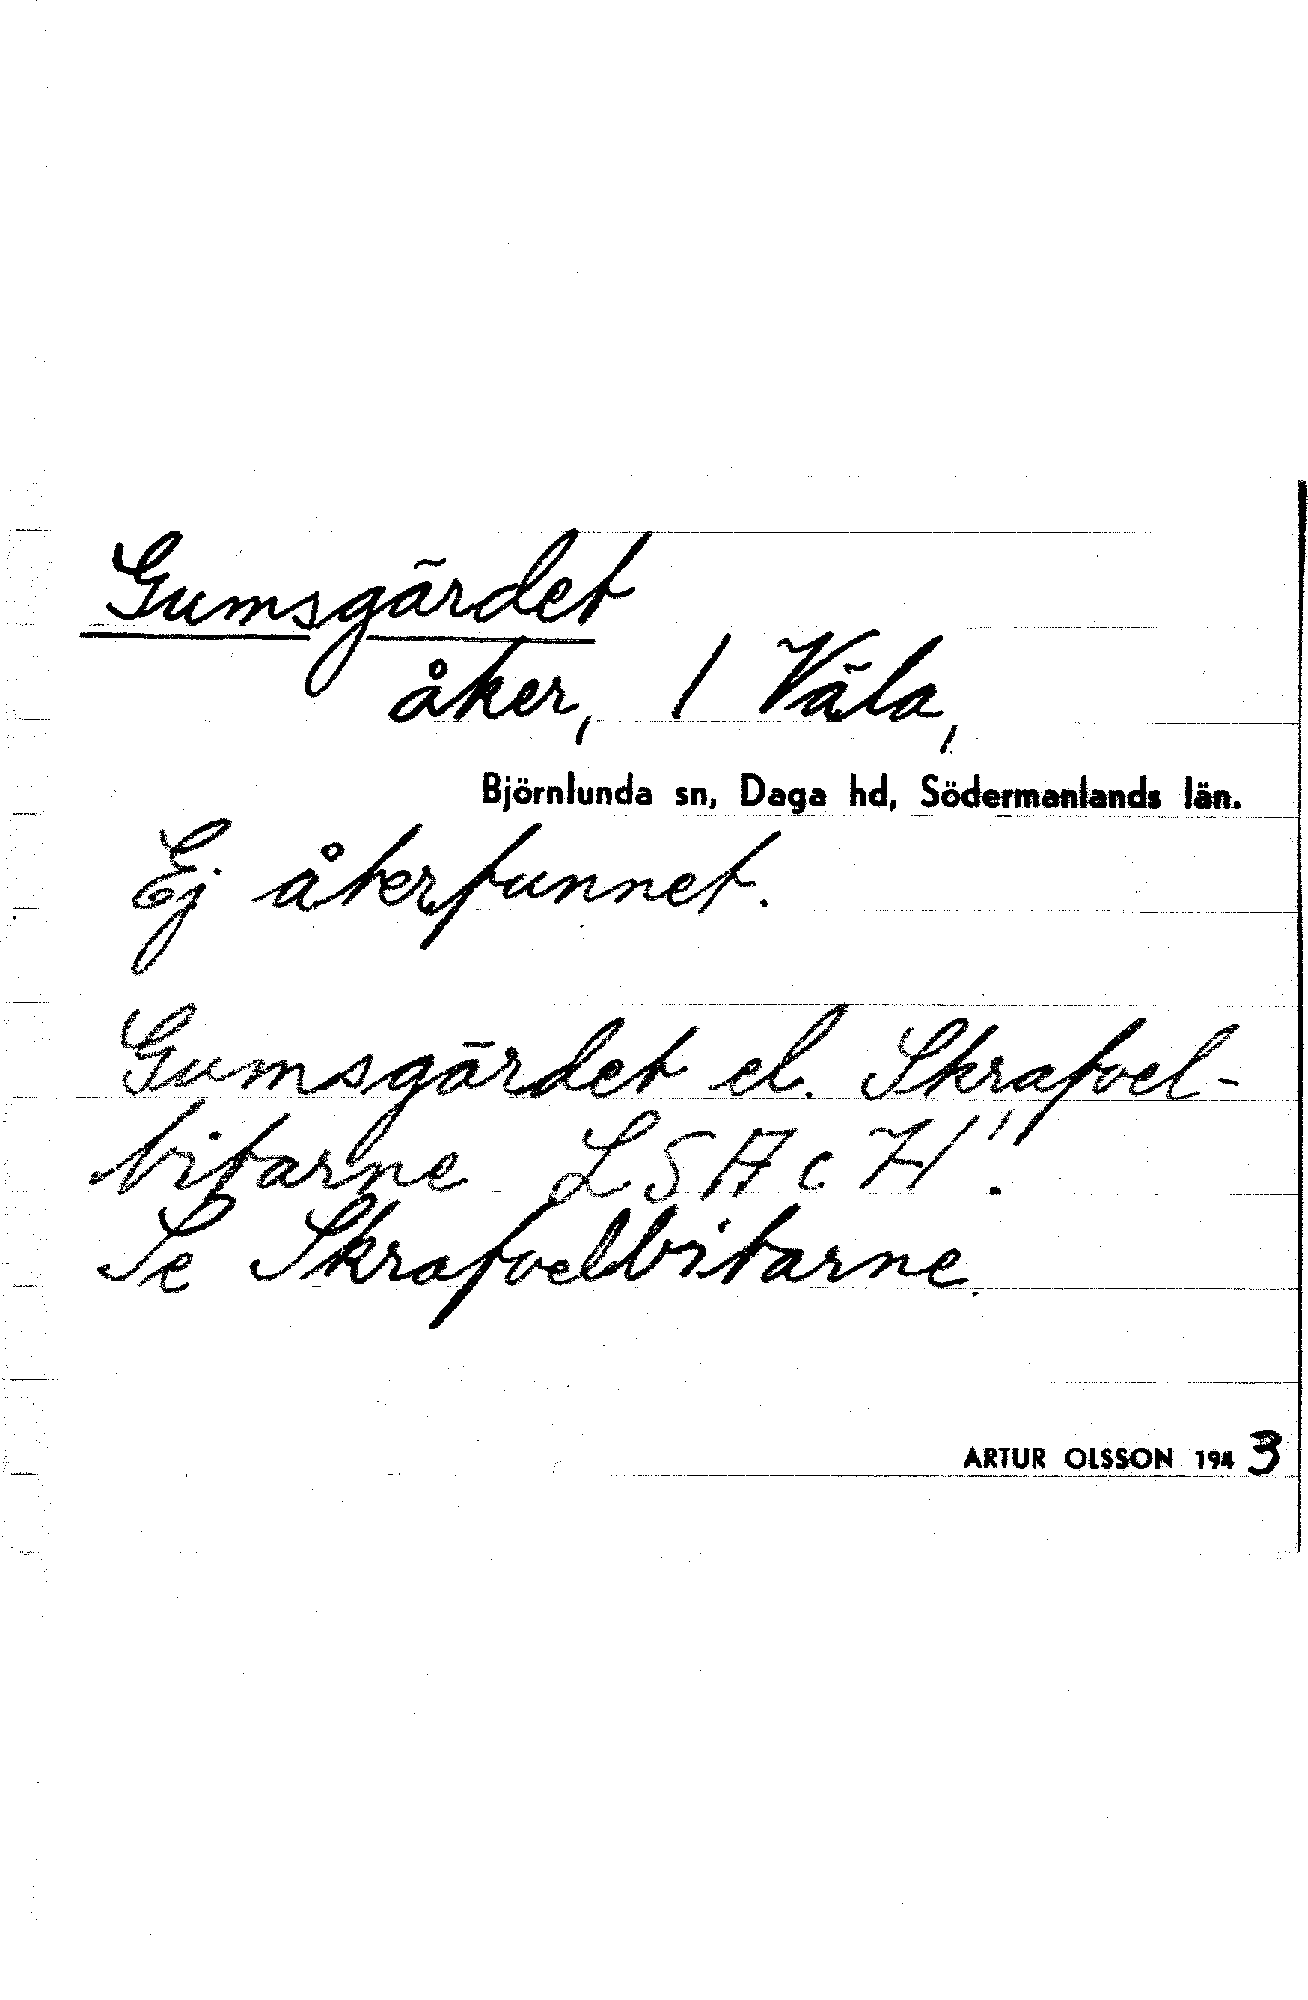 Gumsgärdet
åker, / Väla,
Björnlunda sn, Daga hd, Södermanlands län.
Ej återfunnet.
Gumsgärdet el. Skrafvel-
bitarne LSA c H!
Se Skrafvelbitarne.
ARTUR OLSSON 1943